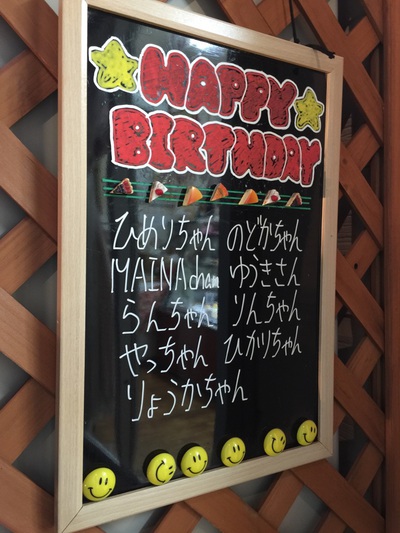 HAPPY
BIRTHDAY
ひめりちゃん のどかちゃん
MAINAchan ゆうきさん
らんちゃん りんちゃん
やっちゃん ひかりちゃん
りょうかちゃん